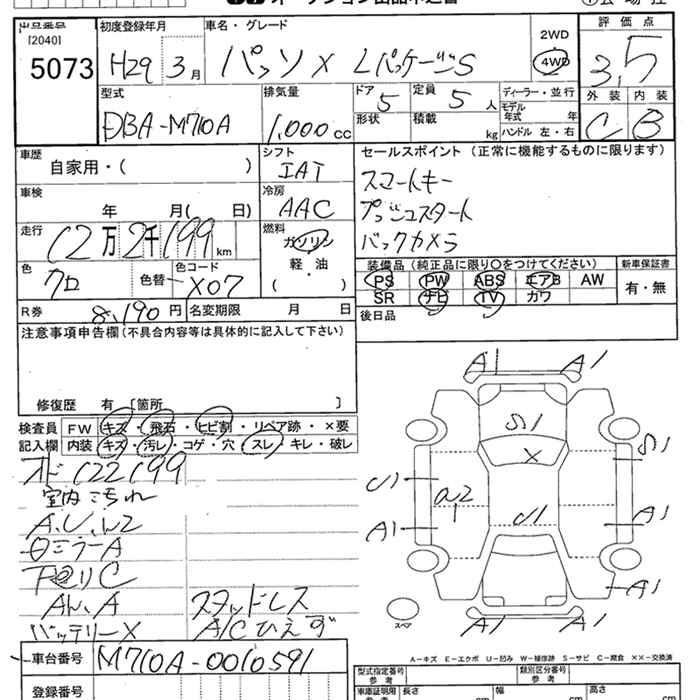 出品番号
[2040]
5073
初度登録年月
H29 3月
車名・グレード
パッソ X LパッケージS
2WD
4WD
評価点
3,5
外装 内装
C B
型式
DBA-M710A
排気量
1,000cc
ドア
5
定員
5人
形状
積載
kg
ディーラー・並行
モデル年式 年
ハンドル 左・右
車歴
自家用・( )
シフト
IAT
車検
年 月( 日)
冷房
AAC
走行
12万2千199km
燃料
ガソリン
軽・油
・
( )
色
クロ
色替
色コード
X07
セールスポイント(正常に機能するものに限ります)
スマートキー
プッシュスタート
バックカメラ
装備品(純正品に限り〇をつけてください)
PS PW ABS エアB AW
SR ナビ TV カワ
新車保証書
有・無
後日品
R券
8,190円
名変期限 月 日
注意事項申告欄(不具合内容等は具体的に記入して下さい)
修復歴 有〔箇所 〕
検査員
記入欄
FW キズ・飛石・ヒビ割・リペア跡・×要
内装 キズ・汚レ・コゲ・穴・スレ・キレ・破レ
オド122199
室内こ汚れ
A.U.W2
ロミラーA
下回りC
Aル.A
スタッドレス
バッテリーX
A/Cひえず
車台番号
M710A-0010591
登録番号
A1 A1
S1
X
S1
U1
a2
1
A1
U1
A1
A1
A1 A1
スペア
A-キズ E-エクボ U-凹み W-補修跡 S-サビ C-腐食 ××-交換済
型式指定番号
参考
類別区分番号
参考
車庫証明用
参考
長さ cm
幅 cm
高さ cm